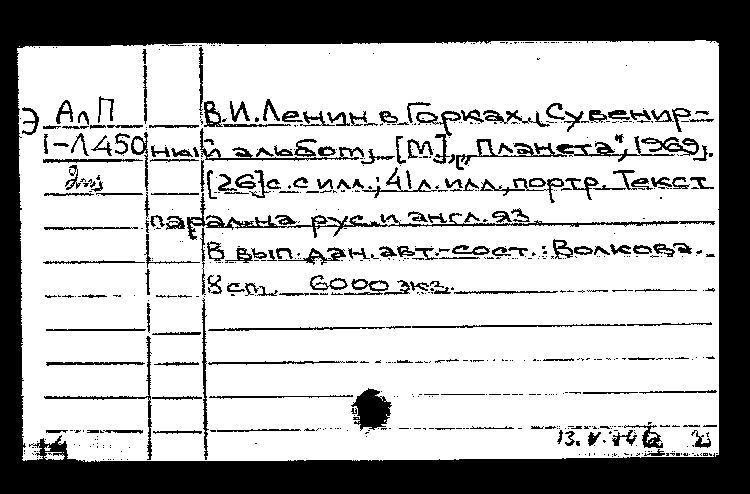 Э АлП В.И.Ленин в Горках. (Сувенир-
1-Л450 ный альбом). [М], "Планета", 1969).
[26]с. с илл.; 41 л. илл., портр. Текст
парал. на рус. и англ. яз.
В вып. дан. авт.-сост.: Волкова.
8 ст. 6000 экз.
13.V.70